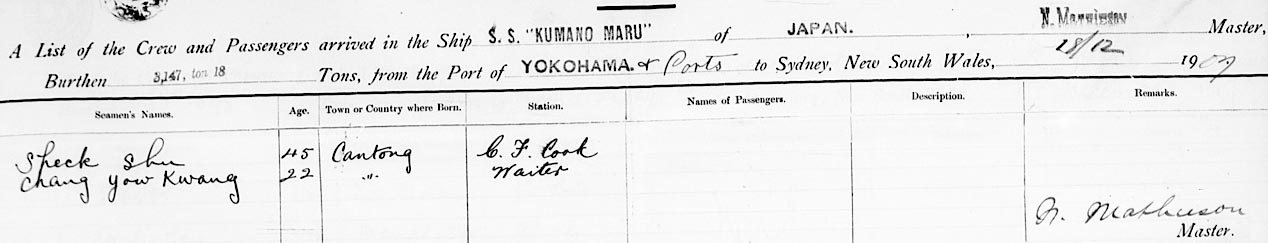 A List of the Crew and Passengers arrived in the Ship S. S. "KUMANO MARU" of JAPAN. , N. Mathieson Master,
Burthen 3,147, ton 18 Tons, from the Port of YOKOHAMA. & Ports to Sydney, New South Wales, 18/12 1907
Seamen's Names. Age. Town or Country where Born. Station. Names of Passengers. Description. Remarks.
Sheck Shu 45 Cantong C. F. Cook
Chang Yow Kwang 22 " Waiter
N. Mathieson
Master.